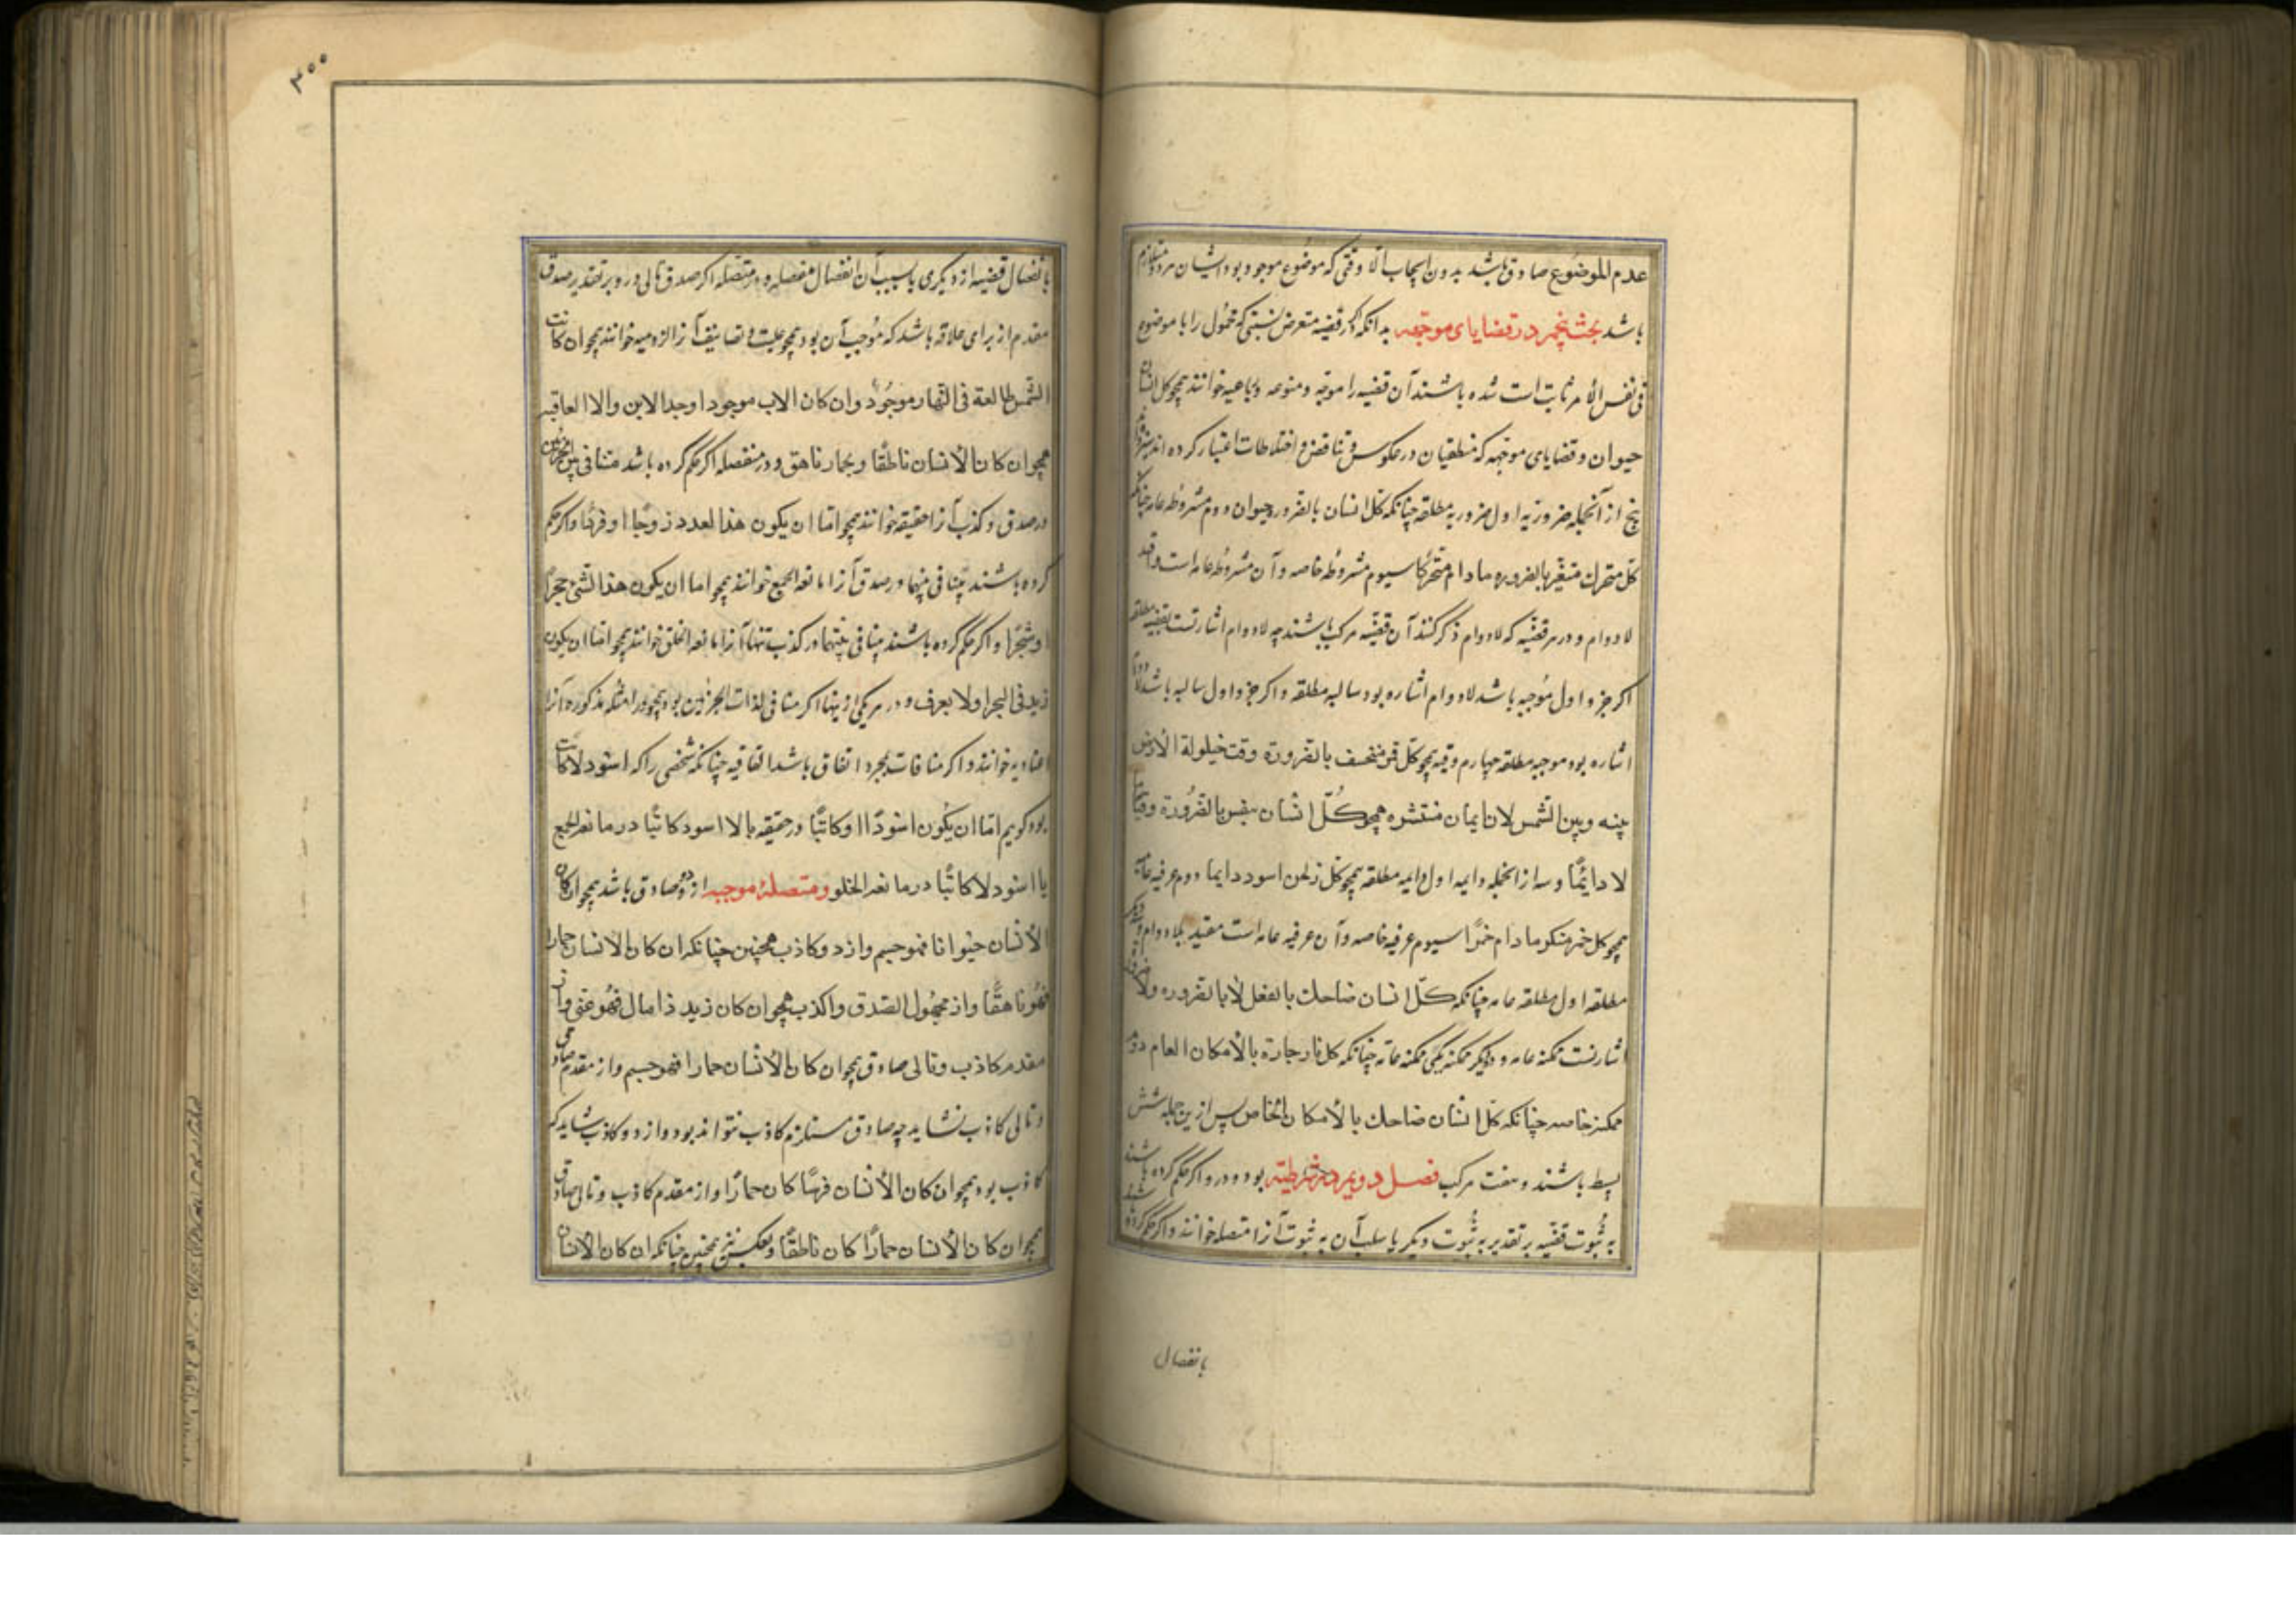 عدم الموضوع صادق باشد بدون ایجاب الا وقتی که موضوع موجود بود ایشان هر دو متلازم
باشد بحث پنجم در قضایای موجهه بدانکه اگر در قضیه متعرض نسبتی که محمول را با موضوع
فی نفس الأمر ثابت است شده باشند آن قضیه را موجه و منوعه و رباعیه خوانند همچو کل انسان
حیوان و قضایای موجهه که منطقیان در عکوس و تناقض و اختلاطات اعتبار کرده اند
پنج از آنجمله ضروریه اول ضروریه مطلقه چنانکه کل انسان بالضروره حیوان دوم مشروطه عامه چنانکه
کل متحرک متغیر بالضروره مادام متحرکا سیوم مشروطه خاصه و آن مشروطه عامه است و قید
لادوام و در هر قضیه که لادوام ذکر کنند آن قضیه مرکب باشند چه لادوام اشارتست بقضیه مطلقه
اگر جزو اول موجبه باشد لادوام اشاره بود سالبه مطلقه و اگر جزو اول سالبه باشد لادوام
اشاره بود موجبه مطلقه چهارم وقتیه همچو کل قمر منخسف بالضرورة وقت حیلولة الأرض
بینه و بین الشمس لادایما ن منتشره همچو کل انسان بالضرورة وقتا ما
لا دایمًا و سه از انجمله دایمه اول دایمه مطلقه همچو کل زنجی اسود دایما دوم عرفیه عامه
همچو کل خمر مسکر مادام خمرًا سیوم عرفیه خاصه و آن عرفیه عامه است مقید بلادوام
مطلقه اول مطلقه عامه چنانکه کل انسان ضاحک بالفعل لا بالضروره
اشارتست ممکنه عامه و دو دیگر ممکنه یکی ممکنه عامه چنانکه کل نار حارة بالأمکان العام دوم
ممکنه خاصه چنانکه کل انسان ضاحک بالأمکان الخاص پس ازین جمله شش
بسیط باشند و هفت مرکب فصل دویم در شرطیته بود و در و اگر حکم کرده باشند
به ثبوت قضیه بر تقدیر به ثبوت دیگر یا سلب آن به ثبوت آنرا متصله خوانند و اگر حکم کرده باشند
بانفصال
۲۰۰
بانفصال قضیه از دیگری یا سبب آن انفصال منفصله و در متصله اگر صدق تالی در و بر تقدیر صدق
مقدم از برای علاقه باشد که موجب آن بود همچو علیت و تضایف آنرا لزومیه خوانند همچو ان کانت
الشمس طالعة فی النهار موجود و ان کان الاب موجودا وجد الابن والا اتفاقیه
همچو ان کان الأنسان ناطقا و بحمار ناهق و در منفصله اگر حکم کرده باشد متنافی بین الجزئین
در صدق و کذب آنرا حقیقه خوانند همچو اما ان یکون هذا العدد زوجًا او فردًا و اگر حکم
کرده باشند بتنافی بینهما در صدق آنرا مانعه الجمع خوانند همچو اما ان یکون هذا الشئ حجرًا
او شجرًا و اگر حکم کرده باشند بتنافی بینهما در کذب تنها آنرا مانعه الخلو خوانند همچو اما ان یکون
زید فی البحر او لا یغرق و در هر یکی ازینها اگر منافی لذات الجزئین بود همچو در امثله مذکوره آنرا
عنادیه خوانند و اگر منافات بمجرد اتفاق باشد اتفاقیه چنانکه شخصی را که اسود لاکاتب
بود گویم اما ان یکون اسودًا او کاتبًا در حقیقه یا لا اسود کاتبًا در مانعه الجمع
یا اسود لا کاتبًا در مانعه الخلو و متصلهٔ موجبه از دو صادق باشد همچو ان کان
الأنسان حیوانا فهو جسم و از دو کاذب همچنین چنانکه ان کان الانسان حمارا
فهو ناهقًا و از مجهول الصدق والکذب همچو ان کان زید ذا مال فهو غنی و از
مقدم کاذب و تالی صادق همچو ان کان الأنسان حمارا فهو جسم و از مقدم صادق
و تالی کاذب نشاید چه صادق مستلزم کاذب نتواند بود و از دو کاذب شاید که
کاذب بود همچو ان کان الأنسان فرسًا کان حمارًا و از مقدم کاذب و تالی صادق
همچو ان کان الأنسان حمارًا کان ناطقًا و بعکس نیز همچنین چنانکه ان کان الأنسان